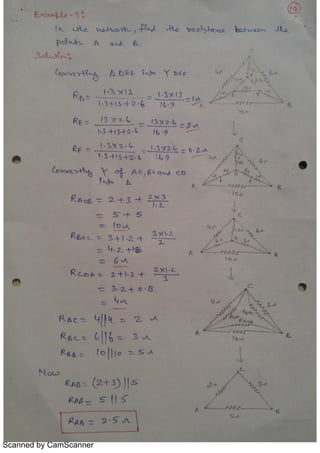 19
Example-7:
In the network, find the resistance between the
points A and B.
Solution:
Converting Δ DEF into Y DEF
RD = 1.3 x 13 / 1.3+13+2.6 = 1.3x13 / 16.9 = 1Ω
RE = 13 x 2.6 / 1.3+13+2.6 = 13x2.6 / 16.9 = 2Ω
RF = 1.3x2.6 / 1.3+13+2.6 = 1.3x2.6 / 16.9 = 0.2Ω
Converting Y of AO, BO and CO
into Δ
RAOB = 2+3+ 2x3 / 1.2
= 5+5
= 10Ω
RBOC = 3+1.2+ 3x1.2 / 2
= 4.2+1.8
= 6Ω
RCOA = 2+1.2+ 2x1.2 / 3
= 3.2+0.8
= 4Ω
RAC = 4||4 = 2Ω
RBC = 6||6 = 3Ω
RAB = 10||10 = 5Ω
Now
RAB = (2+3)||5
RAB = 5||5
RAB = 2.5Ω
C
4Ω
6Ω
A
B
10Ω
C
6Ω
A
B
10Ω
C
4Ω
6Ω
A
B
10Ω
C
4Ω
6Ω
A
B
10Ω
C
2Ω
A
B
5Ω
Scanned by CamScanner